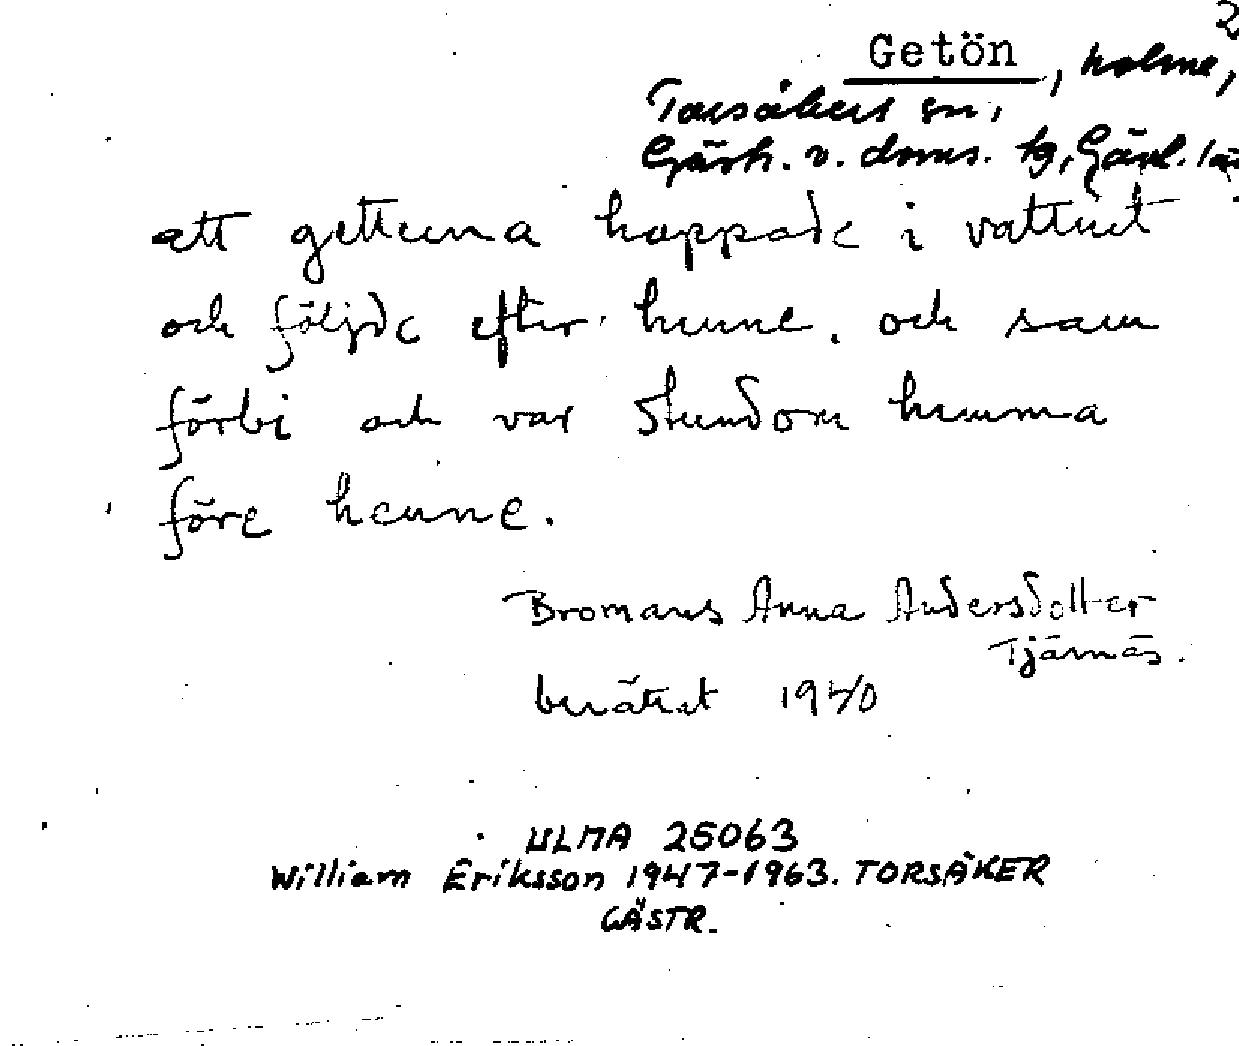 2
Getön, holme,
Torsåkers sn,
Gästr. v. doms. tg, Gävl. lä
att getterna hoppade i vattnet
och följde efter henne. och sam
förbi och var stundom hemma
före henne.
Bromans Anna Andersdotter
Tjärnäs.
berättat 1940
ULMA 25063
William Eriksson 1947-1963. TORSÅKER
GÄSTR.